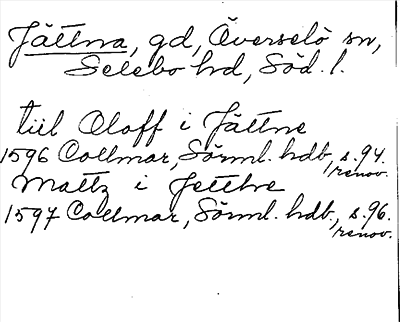 Jättna, gd, Överselö sn,
Selebo hd, Söd. l.
till Oloff i Jättne
1596 Collmar, Sörml. hdb, s. 94.
renov.
Mattz i Jettne
1597 Collmar, Sörml. hdb., s. 96.
renov.